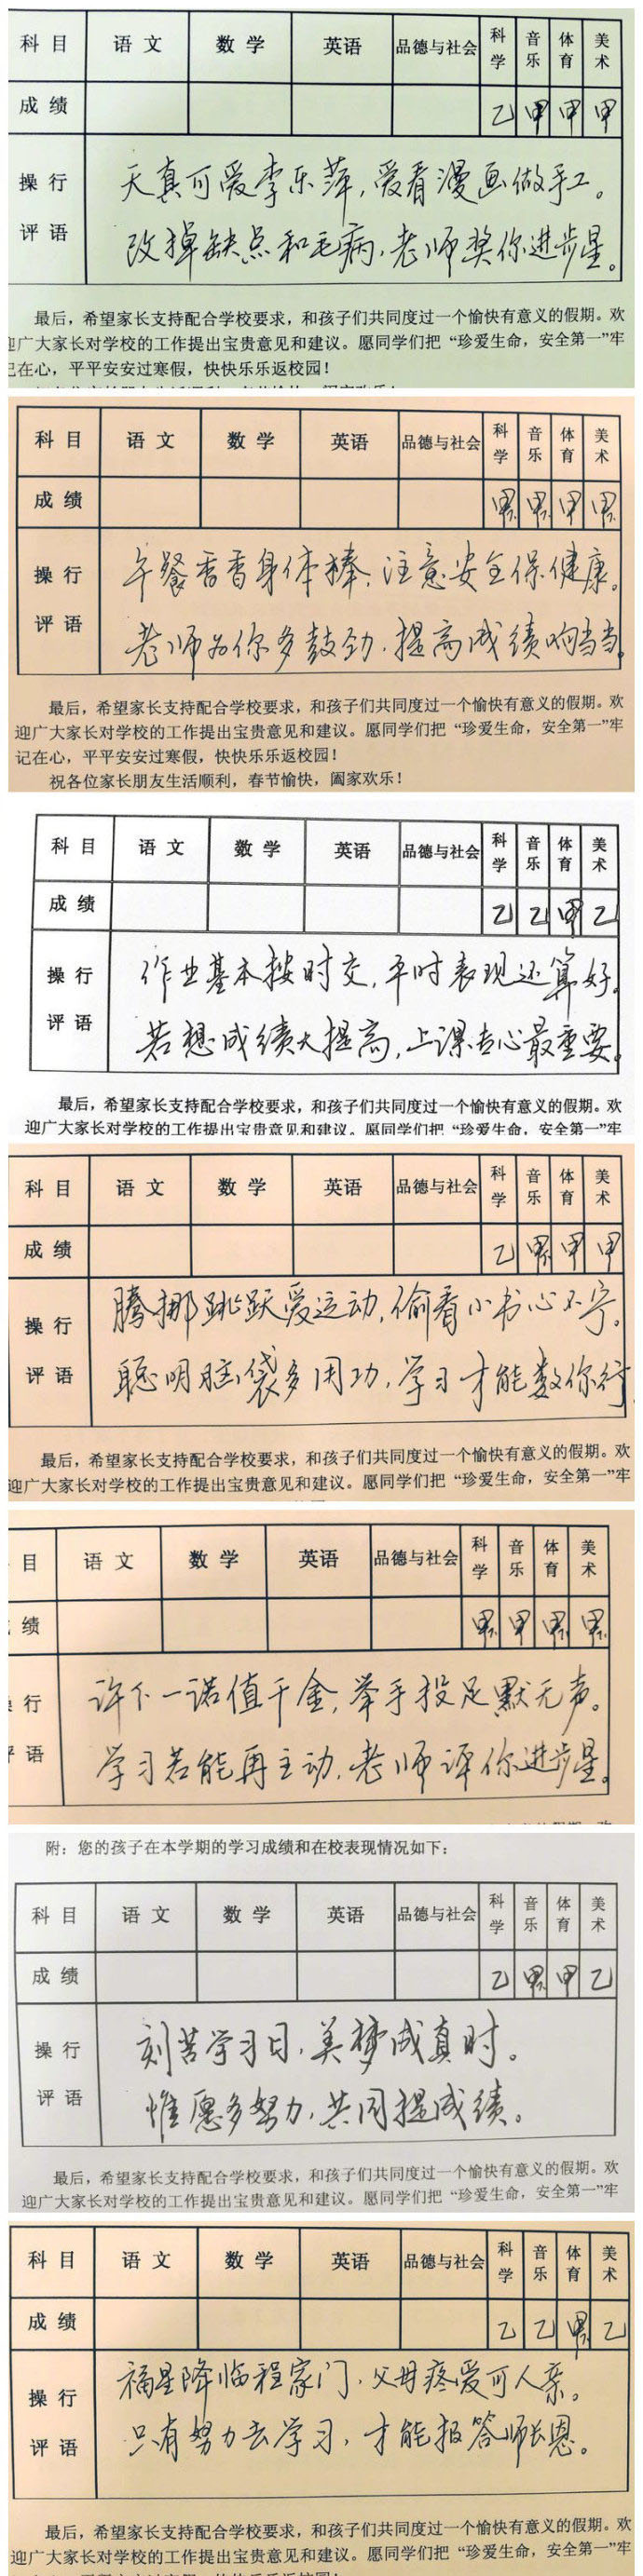 科 目 语 文 数 学 英语 品德与社会 科学 音乐 体育 美术
成 绩 乙 甲 甲 甲
操 行 评 语
天真可爱李乐萍，爱看漫画做手工。
改掉缺点和毛病，老师奖你进步星。
最后，希望家长支持配合学校要求，和孩子们共同度过一个愉快有意义的假期。欢
迎广大家长对学校的工作提出宝贵意见和建议。愿同学们把“珍爱生命，安全第一”牢
记在心，平平安安过寒假，快快乐乐返校园！
科 目 语 文 数 学 英语 品德与社会 科学 音乐 体育 美术
成 绩 甲 甲 甲 甲
操 行 评 语
午餐香香身体棒，注意安全保健康。
老师为你多鼓劲，提高成绩响当当。
最后，希望家长支持配合学校要求，和孩子们共同度过一个愉快有意义的假期。欢
迎广大家长对学校的工作提出宝贵意见和建议。愿同学们把“珍爱生命，安全第一”牢
记在心，平平安安过寒假，快快乐乐返校园！
祝各位家长朋友生活顺利，春节愉快，阖家欢乐！
科 目 语 文 数 学 英语 品德与社会 科学 音乐 体育 美术
成 绩 乙 乙 甲 乙
操 行 评 语
作业基本按时交，平时表现还算好。
若想成绩大提高，上课专心最重要。
最后，希望家长支持配合学校要求，和孩子们共同度过一个愉快有意义的假期。欢
迎广大家长对学校的工作提出宝贵意见和建议。愿同学们把“珍爱生命，安全第一”牢
科 目 语 文 数 学 英语 品德与社会 科学 音乐 体育 美术
成 绩 乙 甲 甲 甲
操 行 评 语
腾挪跳跃爱运动，偷看小书心不宁。
聪明脑袋多用功，学习才能数你行
最后，希望家长支持配合学校要求，和孩子们共同度过一个愉快有意义的假期。欢
迎广大家长对学校的工作提出宝贵意见和建议。愿同学们把“珍爱生命，安全第一”牢
目 语 文 数 学 英语 品德与社会 科学 音乐 体育 美术
绩 甲 甲 甲 甲
行 语
许下一诺值千金，举手投足默无声。
学习若能再主动，老师评你进步星。
附：您的孩子在本学期的学习成绩和在校表现情况如下：
科 目 语 文 数 学 英语 品德与社会 科学 音乐 体育 美术
成 绩 乙 甲 甲 乙
操 行 评 语
刻苦学习日，美梦成真时。
惟愿多努力，共同提成绩。
最后，希望家长支持配合学校要求，和孩子们共同度过一个愉快有意义的假期。欢
迎广大家长对学校的工作提出宝贵意见和建议。愿同学们把“珍爱生命，安全第一”牢
科 目 语 文 数 学 英语 品德与社会 科学 音乐 体育 美术
成 绩 乙 乙 甲 乙
操 行 评 语
福星降临程家门，父母疼爱可人亲。
只有努力去学习，才能报答师长恩。
最后，希望家长支持配合学校要求，和孩子们共同度过一个愉快有意义的假期。欢
迎广大家长对学校的工作提出宝贵意见和建议。愿同学们把“珍爱生命，安全第一”牢